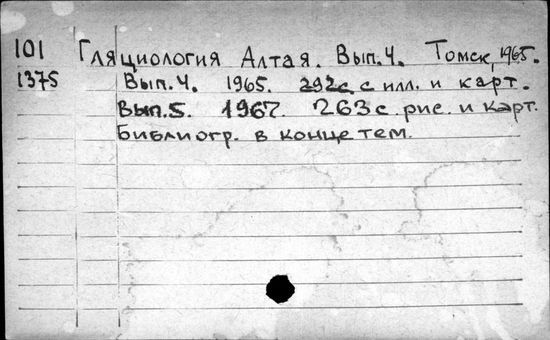 101 Гляциология Алтая. Вып.4. Томск, 1965.
1375 Вып.4. 1965. 292с. с илл. и карт.
Вып.5. 1967. 263с. рис. и карт.
Библиогр. в конце тем.